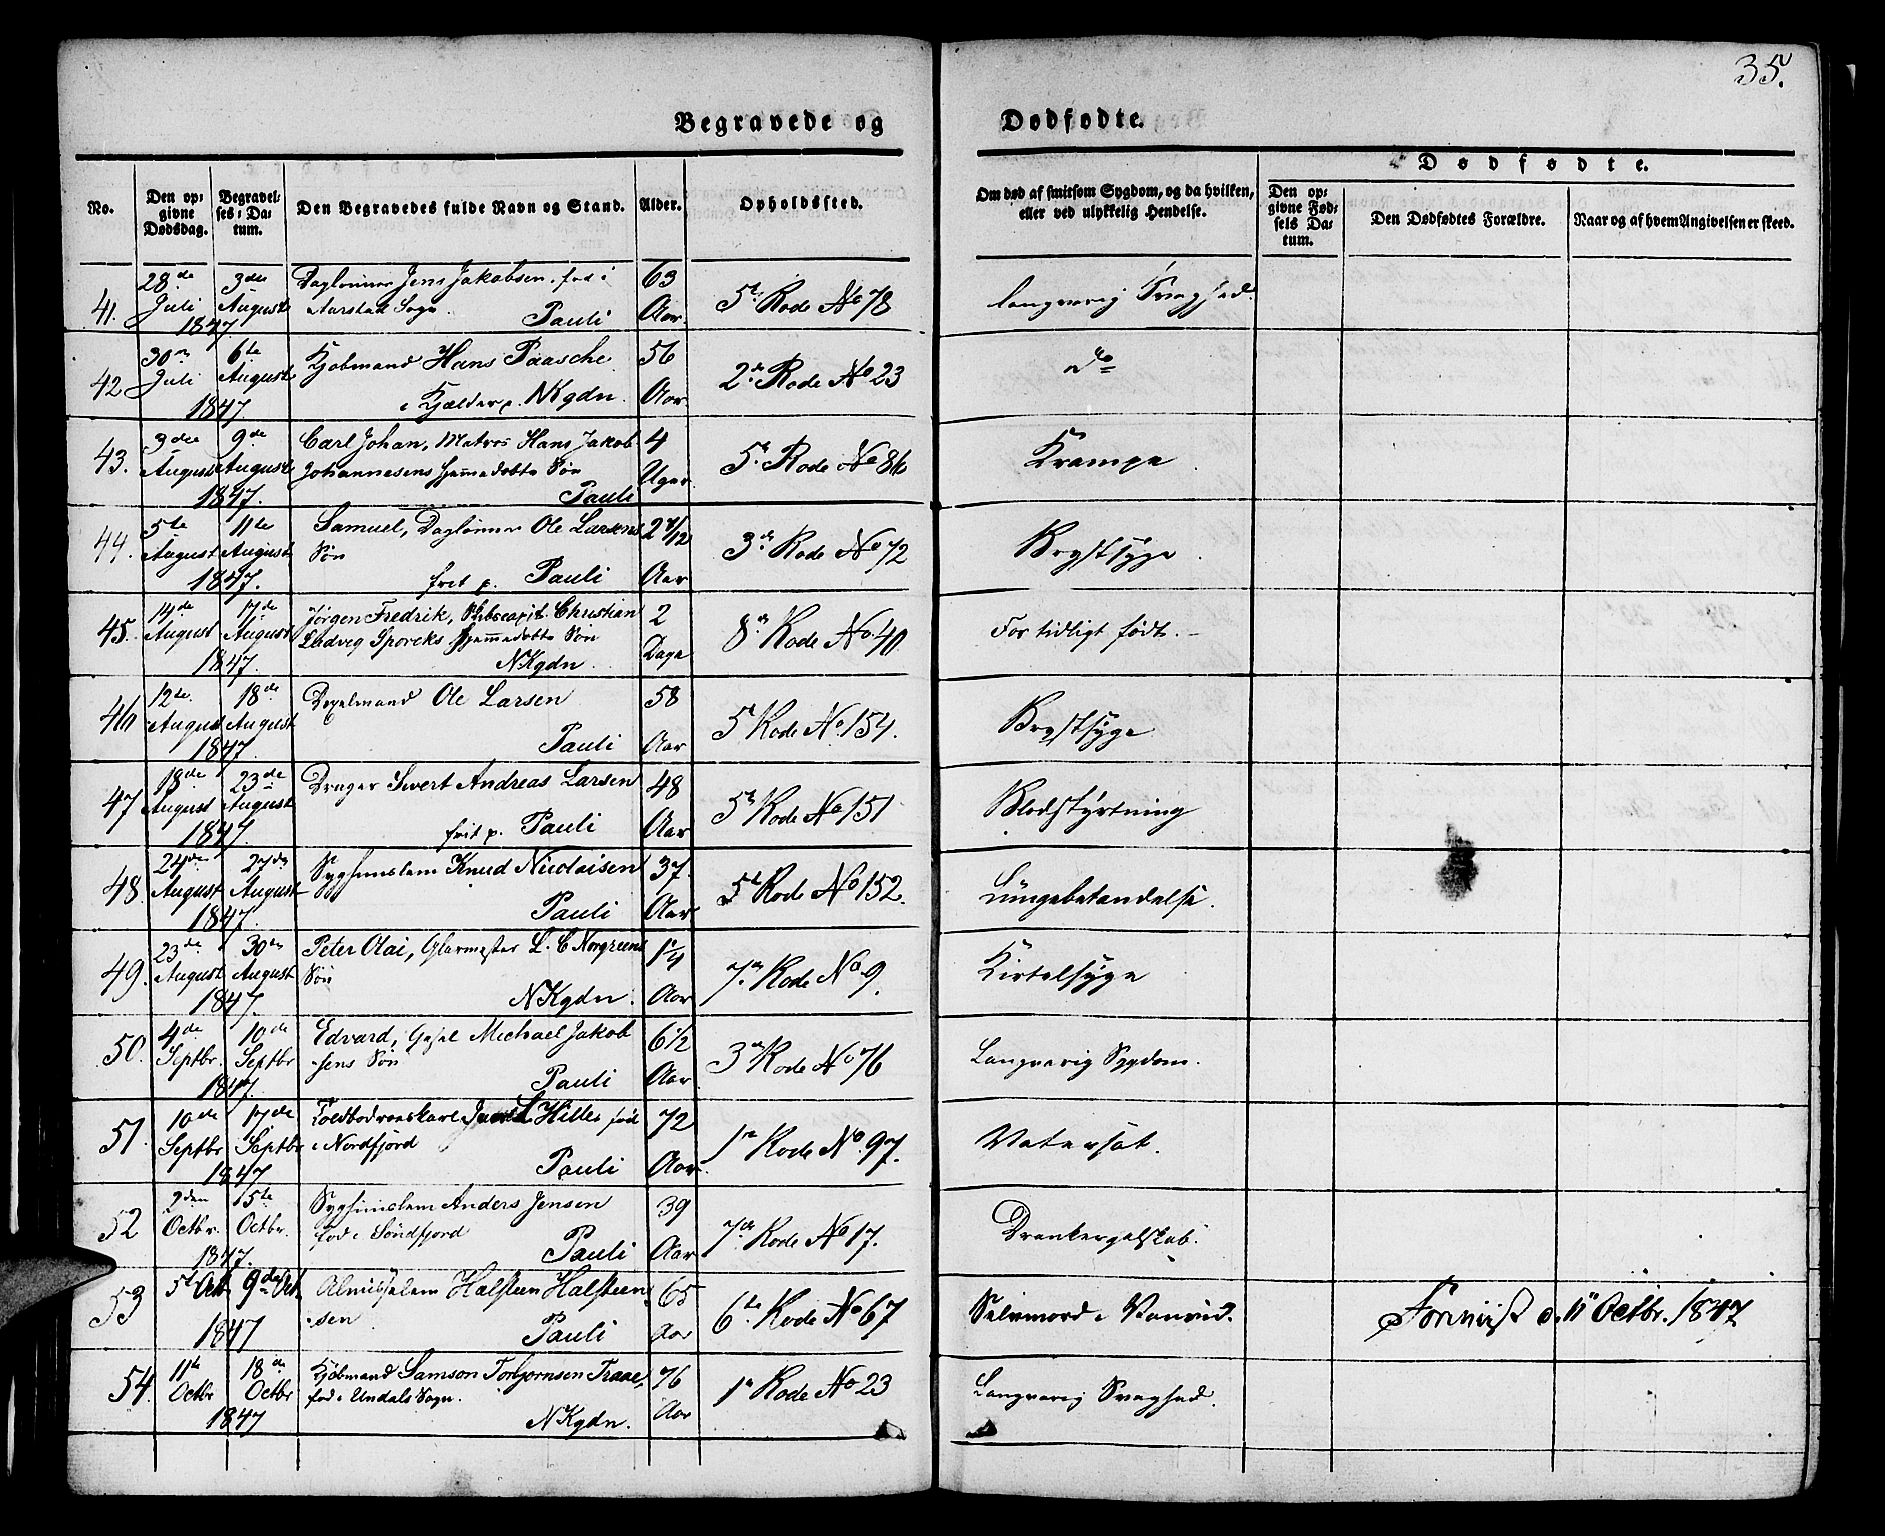 35.
Begravede og Dødfødte.
Dødfødte.
No.
Den op-
givne
Dødsdag.
Begravel-
ses-Da-
tum.
Den Begravedes fulde Navn og Stand.
Alder.
Opholdssted.
Om død af smitsom Sygdom, og da hvilken,
eller ved ulykkelig Hendelse.
Den op-
givne Fød-
sels Da-
tum.
Den Dødfødtes Forældre.
Naar og af hvem Angivelsen er skeed.
41. 28de Juli 3die August 1847. Daglønner Jens Jakobsen, fød i 63
Aarstad Sogn. Pauli Aar. 5te Rode No 78 langvarig Svaghed.
42. 30te Juli 6te August 1847 Kjøbmand Hans Paasche 56
i Kjælder p. NKgdn. Aar 2de Rode No 23 do
43. 3die August 9de August 1847. Carl Johan, Matros Hans Jakob 4
Johannesens hjemmedøbte Søn
Pauli Uger 5te Rode No 86 Krampe.
44. 5te August 11te August 1847. Samuel, Daglønner Ole Larsens
Søn
frit p. Pauli Aar 3de Rode No 72 Brystsyge.
45. 14de August 17de August 1847. Jørgen Fredrik, Skibscapit. Christian 2
Ludvig Sporcks hjemmedøbte Søn
NKgdn. Dage 8de Rode No 40 For tidligt født.-
46 12te August 18de August 1847. Ole Larsen 58
Pauli Aar 5te Rode No 154. Brystsyge
47 18de August 23de August 1847. Drager Sivert Andreas Larsen 48
frit p. Pauli Aar 5te Rode No 151 Blodstyrtning
48. 24de August 27de August 1847. Knud Nicolaisen 37.
Pauli Aar 5te Rode No 152. Lungebetændelse.
49. 23de August 30te August 1847. Peter Olai, Glarmester L. C. Norgreens 1 1/4
Søn
NKgdn. Aar 7de Rode No. 9. Kirtelsyge
50. 4de Septbr. 10de Septbr 1847. Edvard, Gesel Michael Jakob 6 1/2
sens Søn
Pauli Aar 3de Rode No 76 Langvarig Sygdom.
51. 10de Septbr 17de Septbr 1847 Toldbodroerskarl Hille fød 72
i Nordfjord
Pauli Aar. 1te Rode No. 97. Vatersot.
52 2den Octbr. 15te Octbr. 1847. Anders Jensen 39
fød i Søndfjord
Pauli Aar 7de Rode No 17. Drankergalskab.
53 5te Oct. 9de Oct. 1847 Almuslem Halsteen Halsteen 65
sen
Pauli Aar 6te Rode No 67 Selvmord i Vanvid. d. 11 Octbr. 1847
54. 11te Octbr 18de Octbr 1847 Kjøbmand Samson Torbjornsen Traae, 76
fød i Undals Sogn.
NKgdn. Aar 1te Rode No 23 Langvarig Svaghed.